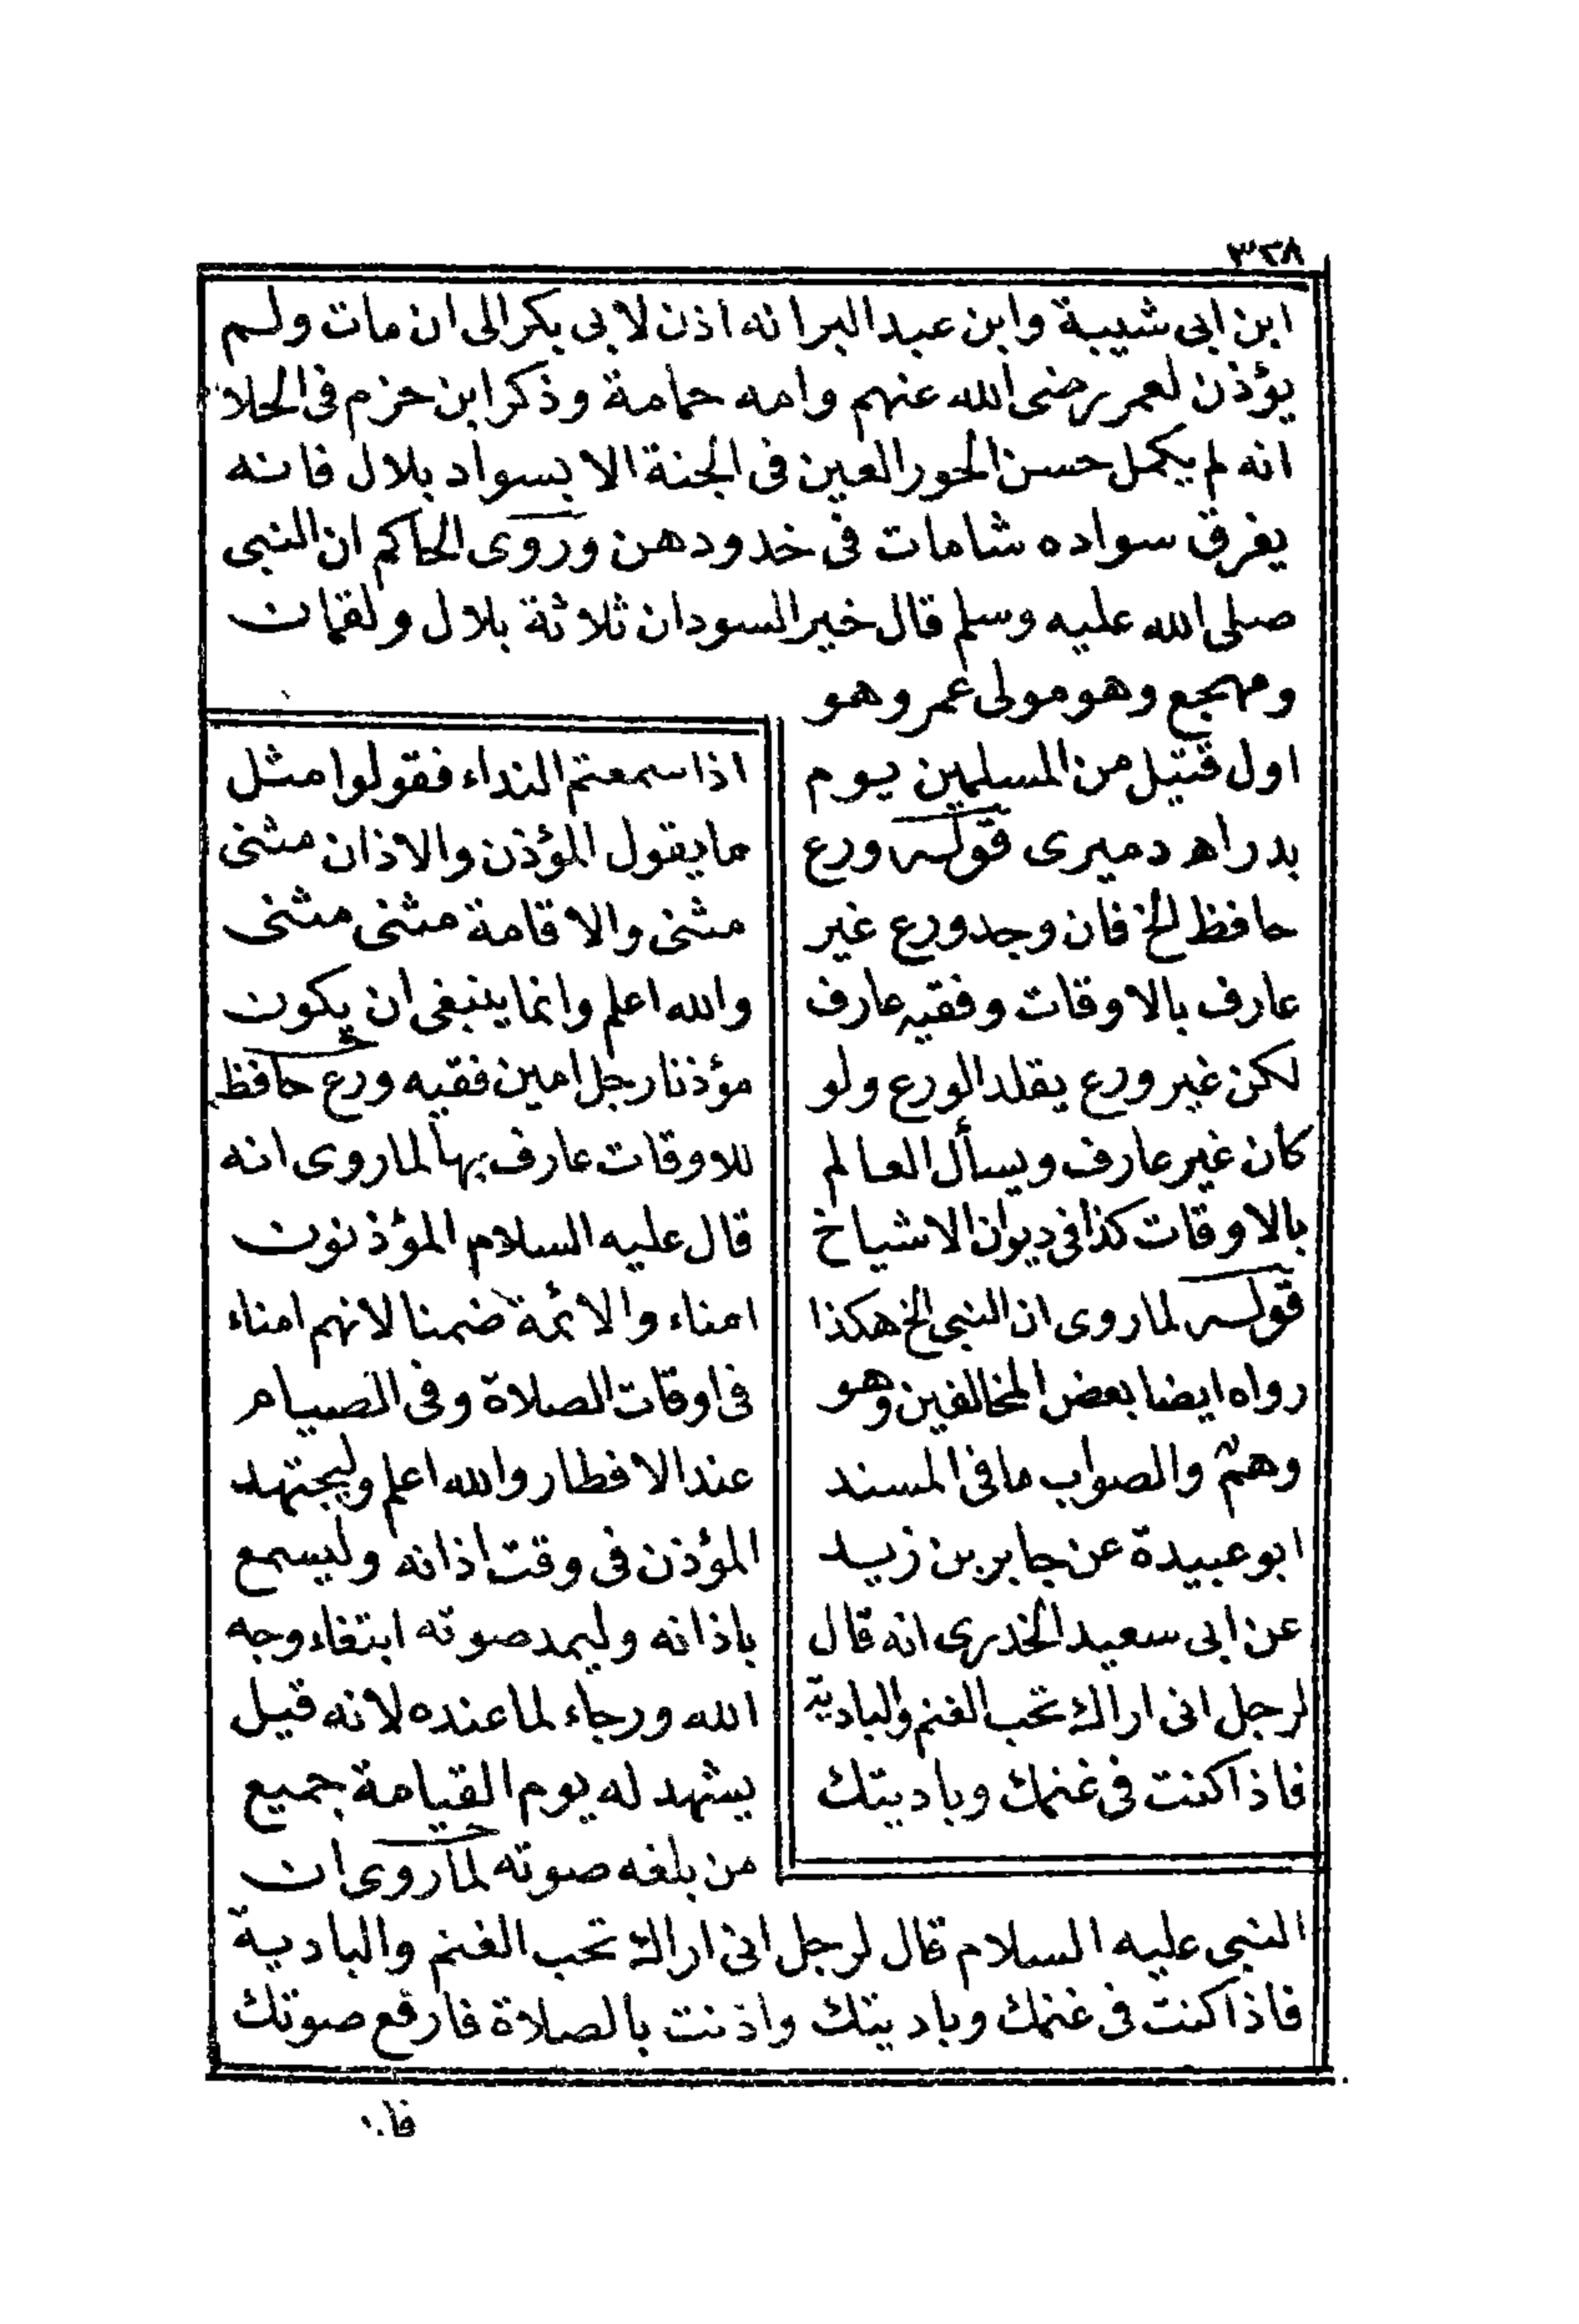 ٣٢٨
ابن ابى شيبة وابن عبد البر انه اذن لابى بكر الى ان مات ولم
يؤذن لعمر رضى الله عنهم وامه حمامة وذكر ابن حزم فى الحلا
انه لم يكمل حسن الحور العين فى الجنة الا بسواد بلال فانه
يفرق سواده شامات فى خدودهن وروى الحاكم ان النبى
صلى الله عليه وسلم قال خير السودان ثلاثة بلال ولقمان
ومهجع وهو مولى عمر وهو
اول قتيل من المسلمين يوم
بدر اهـ دميرى قوله ورع
حافظ الخ فان وجد ورع غير
عارف بالاوقات وفقيه عارف
لكن غير ورع يقلد الورع ولو
كان غير عارف ويسأل العالم
بالاوقات كذا فى ديوان الاشياخ
قوله لما روى ان النبى الخ هكذا
رواه ايضا بعض المخالفين وهو
وهم والصواب ما فى المسند
ابو عبيدة عن جابر بن زيد
عن ابى سعيد الخدرى انه قال
لرجل انى اراك تحب الغنم والبادية
فاذا كنت فى غنمك وباديتك
اذا سمعتم النداء فقولوا مثل
ما يقول المؤذن والاذان مثنى
مثنى والاقامة مثنى مثنى
والله اعلم وانما ينبغى ان يكون
مؤذنا رجل امين فقيه ورع حافظ
للاوقات عارف بها لما روى انه
قال عليه السلام المؤذنون
امناء والائمة ضمنا لانهم امناء
فى اوقات الصلاة وفى الصيام
عند الافطار والله اعلم وليجتهد
المؤذن فى وقت اذانه وليسمع
باذانه وليمد صوته ابتغاء وجه
الله ورجاء لما عنده لانه قيل
يشهد له يوم القيامة جميع
من بلغه صوته لما روى ان
النبى عليه السلام قال لرجل انى اراك تحب الغنم والبادية
فاذا كنت فى غنمك وباديتك واذنت بالصلاة فارفع صوتك